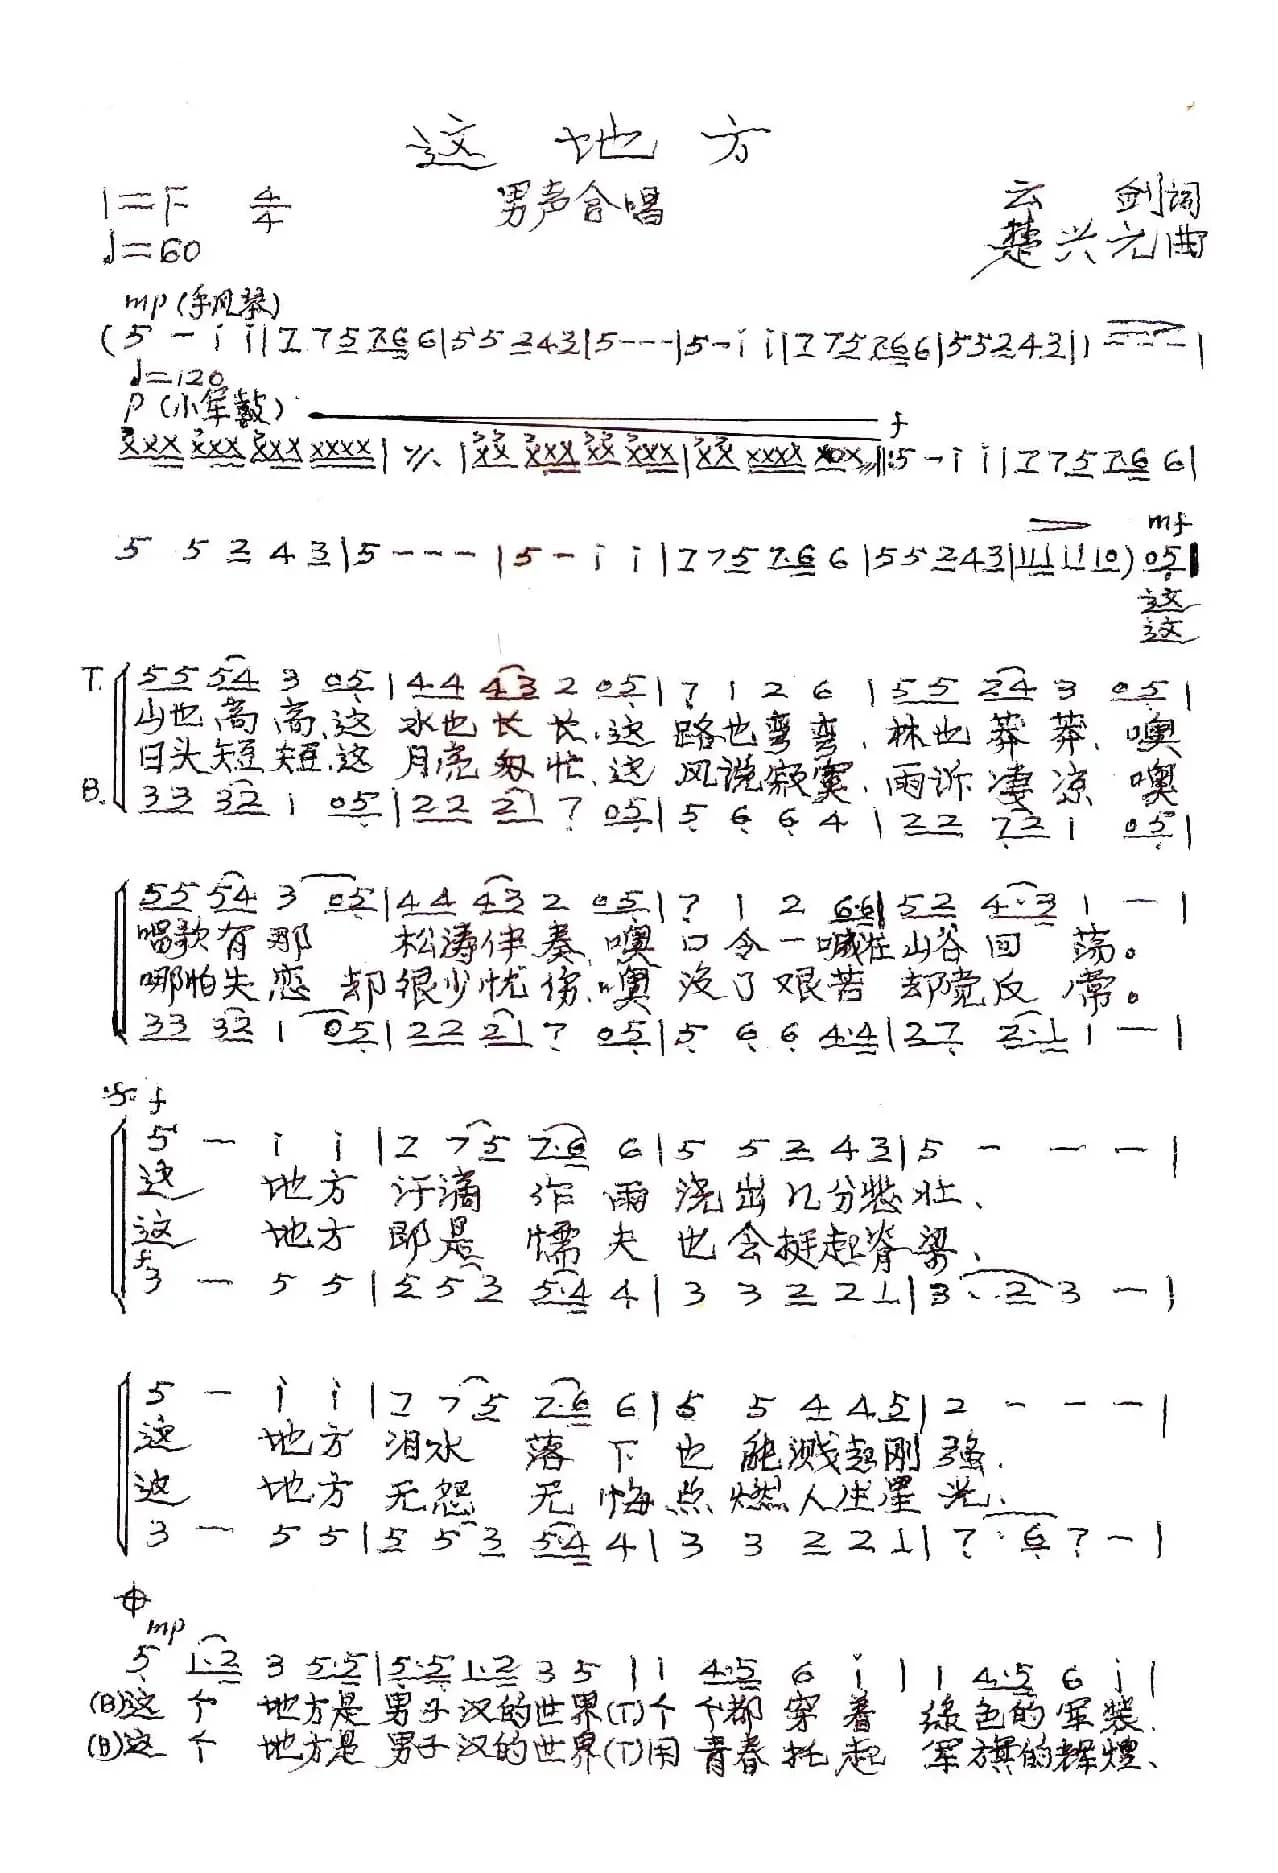 这地方
1=F 4/4 男声合唱 云剑词
♩=60 楚兴元曲
mp(手风琴)
(5 - i i | 7 7 5 7·6 6 | 5 5 2 4 3 | 5 - - - | 5 - i i | 7 7 5 7·6 6 | 5 5 2 4 3 | 1 - - - |
♩=120
p(小军鼓) f
xxx xxx xxx xxxx | ٪ | xx xxx xx xxx | xx xxxx xox ‖: 5 - i i | 7 7 5 7·6 6 |
mf
5 5 2 4 3 | 5 - - - | 5 - i i | 7 7 5 7·6 6 | 5 5 2 4 3 | 1 1 1 1 1 0) 0 5 |
这
这
T. 5 5 5 4 3 0 5 | 4 4 4 3 2 0 5 | 7 1 2 6 | 5 5 2 4 3 0 5 |
山也高高,这 水也长长,这 路也弯弯,林也莽莽,噢
日头短短,这 月亮匆忙,这 风说寂寞,雨诉凄凉 噢
B. 3 3 3 2 1 0 5 | 2 2 2 1 7 0 5 | 5 6 6 4 | 2 2 7 2 1 0 5 |
5 5 5 4 3 0 5 | 4 4 4 3 2 0 5 | 7 1 2 6 6 | 5 2 4·3 1 - |
唱歌有那 松涛伴奏,噢 口令一喊在山谷回荡。
哪怕失恋 却很少忧伤,噢 没了艰苦 却觉反常。
3 3 3 2 1 0 5 | 2 2 2 1 7 0 5 | 5 6 6 4·4 | 2 7 2·1 1 - |
f
5 - i i | 7 7 5 7·6 6 | 5 5 2 4 3 | 5 - - - |
这 地方 汗滴作雨 浇出几分悲壮、
这 地方 即是懦夫 也会挺起脊梁、
f
3 - 5 5 | 5 5 3 5·4 4 | 3 3 2 2 1 | 3 · 2 3 - |
5 - i i | 7 7 5 7·6 6 | 5 5 4 4 5 | 2 - - - |
这 地方 泪水落下 也能溅起刚强.
这 地方 无怨无悔 点燃人生星光、
3 - 5 5 | 5 5 3 5·4 4 | 3 3 2 2 1 | 7 · 6 7 - |
mp
5 1·2 3 5·5 | 5·5 1·2 3 5 | 1 4·5 6 i | 1 4·5 6 i |
(B)这个 地方是男子汉的世界(T)个个都穿着 绿色的军装.
(B)这个 地方是男子汉的世界(T)用青春托起 军旗的辉煌、